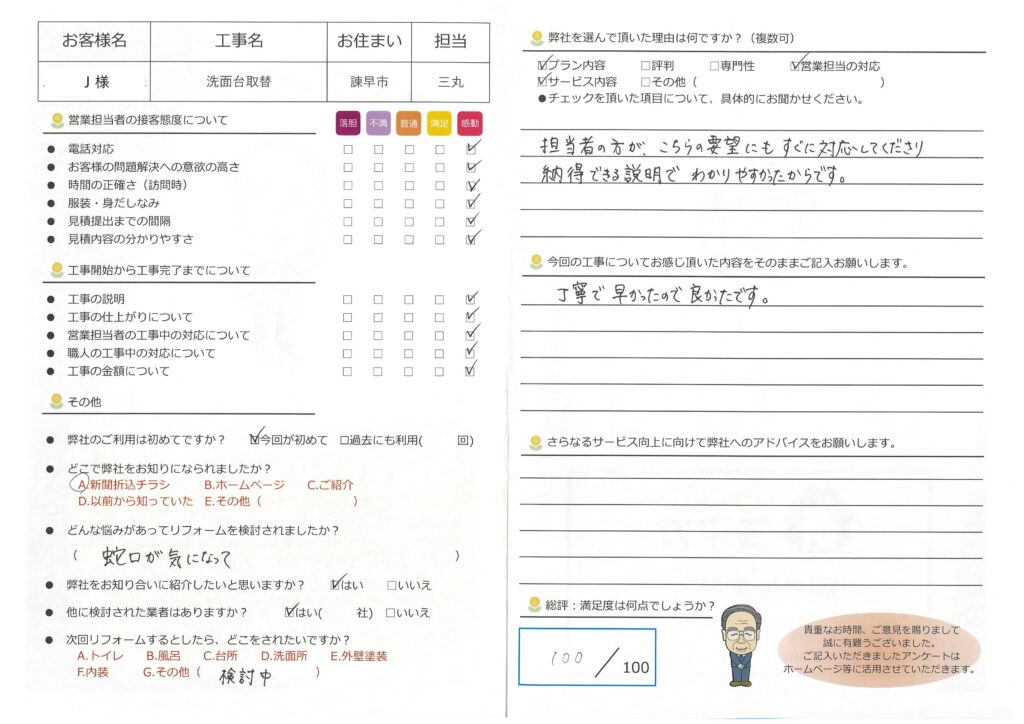 お客様名 工事名 お住まい 担当
J 様 洗面台取替 諫早市 三丸
営業担当者の接客態度について 落胆 不満 普通 満足 感動
● 電話対応 □ □ □ □ ☑
● お客様の問題解決への意欲の高さ □ □ □ □ ☑
● 時間の正確さ（訪問時） □ □ □ □ ☑
● 服装・身だしなみ □ □ □ □ ☑
● 見積提出までの間隔 □ □ □ □ ☑
● 見積内容の分かりやすさ □ □ □ □ ☑
工事開始から工事完了までについて
● 工事の説明 □ □ □ □ ☑
● 工事の仕上がりについて □ □ □ □ ☑
● 営業担当者の工事中の対応について □ □ □ □ ☑
● 職人の工事中の対応について □ □ □ □ ☑
● 工事の金額について □ □ □ □ ☑
その他
● 弊社のご利用は初めてですか？ ☑今回が初めて □過去にも利用( 回)
● どこで弊社をお知りになられましたか？
A.新聞折込チラシ B.ホームページ C.ご紹介
D.以前から知っていた E.その他（ ）
● どんな悩みがあってリフォームを検討されましたか？
（ 蛇口が気になって ）
● 弊社をお知り合いに紹介したいと思いますか？ ☑はい □いいえ
● 他に検討された業者はありますか？ ☑はい( 社) □いいえ
● 次回リフォームするとしたら、どこをされたいですか？
A.トイレ B.風呂 C.台所 D.洗面所 E.外壁塗装
F.内装 G.その他（ 検討中 ）
弊社を選んで頂いた理由は何ですか？（複数可）
☑プラン内容 □評判 □専門性 ☑営業担当の対応
☑サービス内容 □その他（ ）
●チェックを頂いた項目について、具体的にお聞かせください。
担当者の方が、こちらの要望にもすぐに対応してくださり
納得できる説明でわかりやすかったからです。
今回の工事についてお感じ頂いた内容をそのままご記入お願いします。
丁寧で早かったので良かったです。
さらなるサービス向上に向けて弊社へのアドバイスをお願いします。
総評：満足度は何点でしょうか？
100 / 100
貴重なお時間、ご意見を賜りまして
誠に有難うございました。
ご記入いただきましたアンケートは
ホームページ等に活用させていただきます。